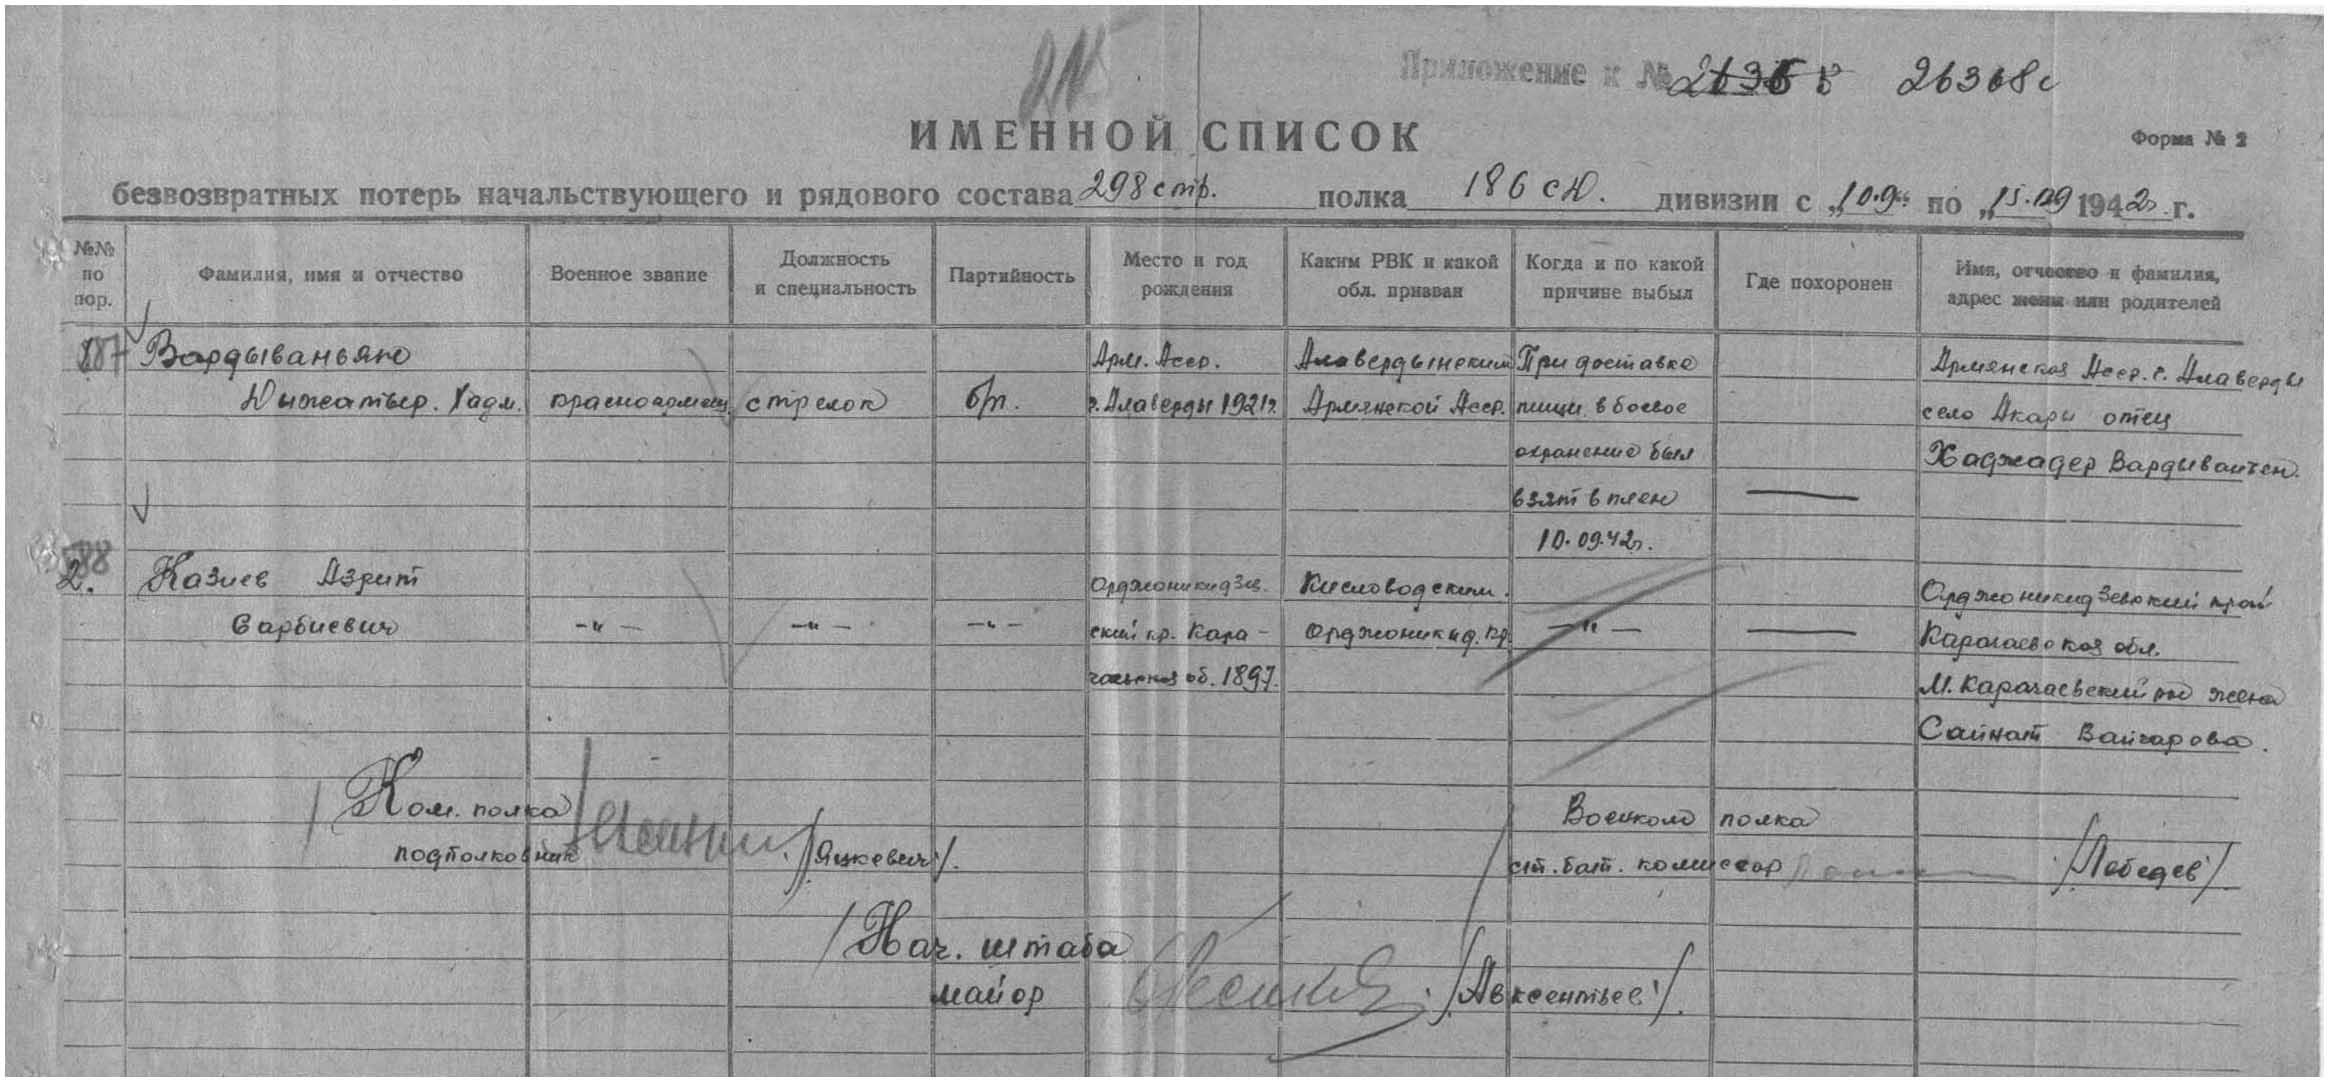 215
Приложение к № 26368с
ИМЕННОЙ СПИСОК
Форма № 2
безвозвратных потерь начальствующего и рядового состава 298 стр. полка 186 сд. дивизии с „10.9“ по „15.09 1942 г.
№№ по пор.
Фамилия, имя и отчество
Военное звание
Должность и специальность
Партийность
Место и год рождения
Каким РВК и какой обл. призван
Когда и по какой причине выбыл
Где похоронен
Имя, отчество и фамилия, адрес жены или родителей
587 Вардываньян Арм. Асср. Алавердынским При доставке Армянская Асср. г. Алаверды
Хадж. красноармеец стрелок б/п. г. Алаверды 1921г. Армянской Асср. пищи в боевое село Акари отец
охранение был Хаджадер
взят в плен —
10.09.42г.
588
2. Казиев Азрит Орджоникидзев- Кисловодским. Орджоникидзевский край
Сарбиевич —"— —"— —"— ский кр. Кара- Орджоникид. кр. —"— — Карачаевская обл.
чаевская об. 1897. М. Карачаевский жена
Сайнат Байчарова.
Ком. полка Военком полка
подполковник /Яцкевич/. ст. бат. комиссар /Лебедев/
Нач. штаба
майор /Авксентьев/.